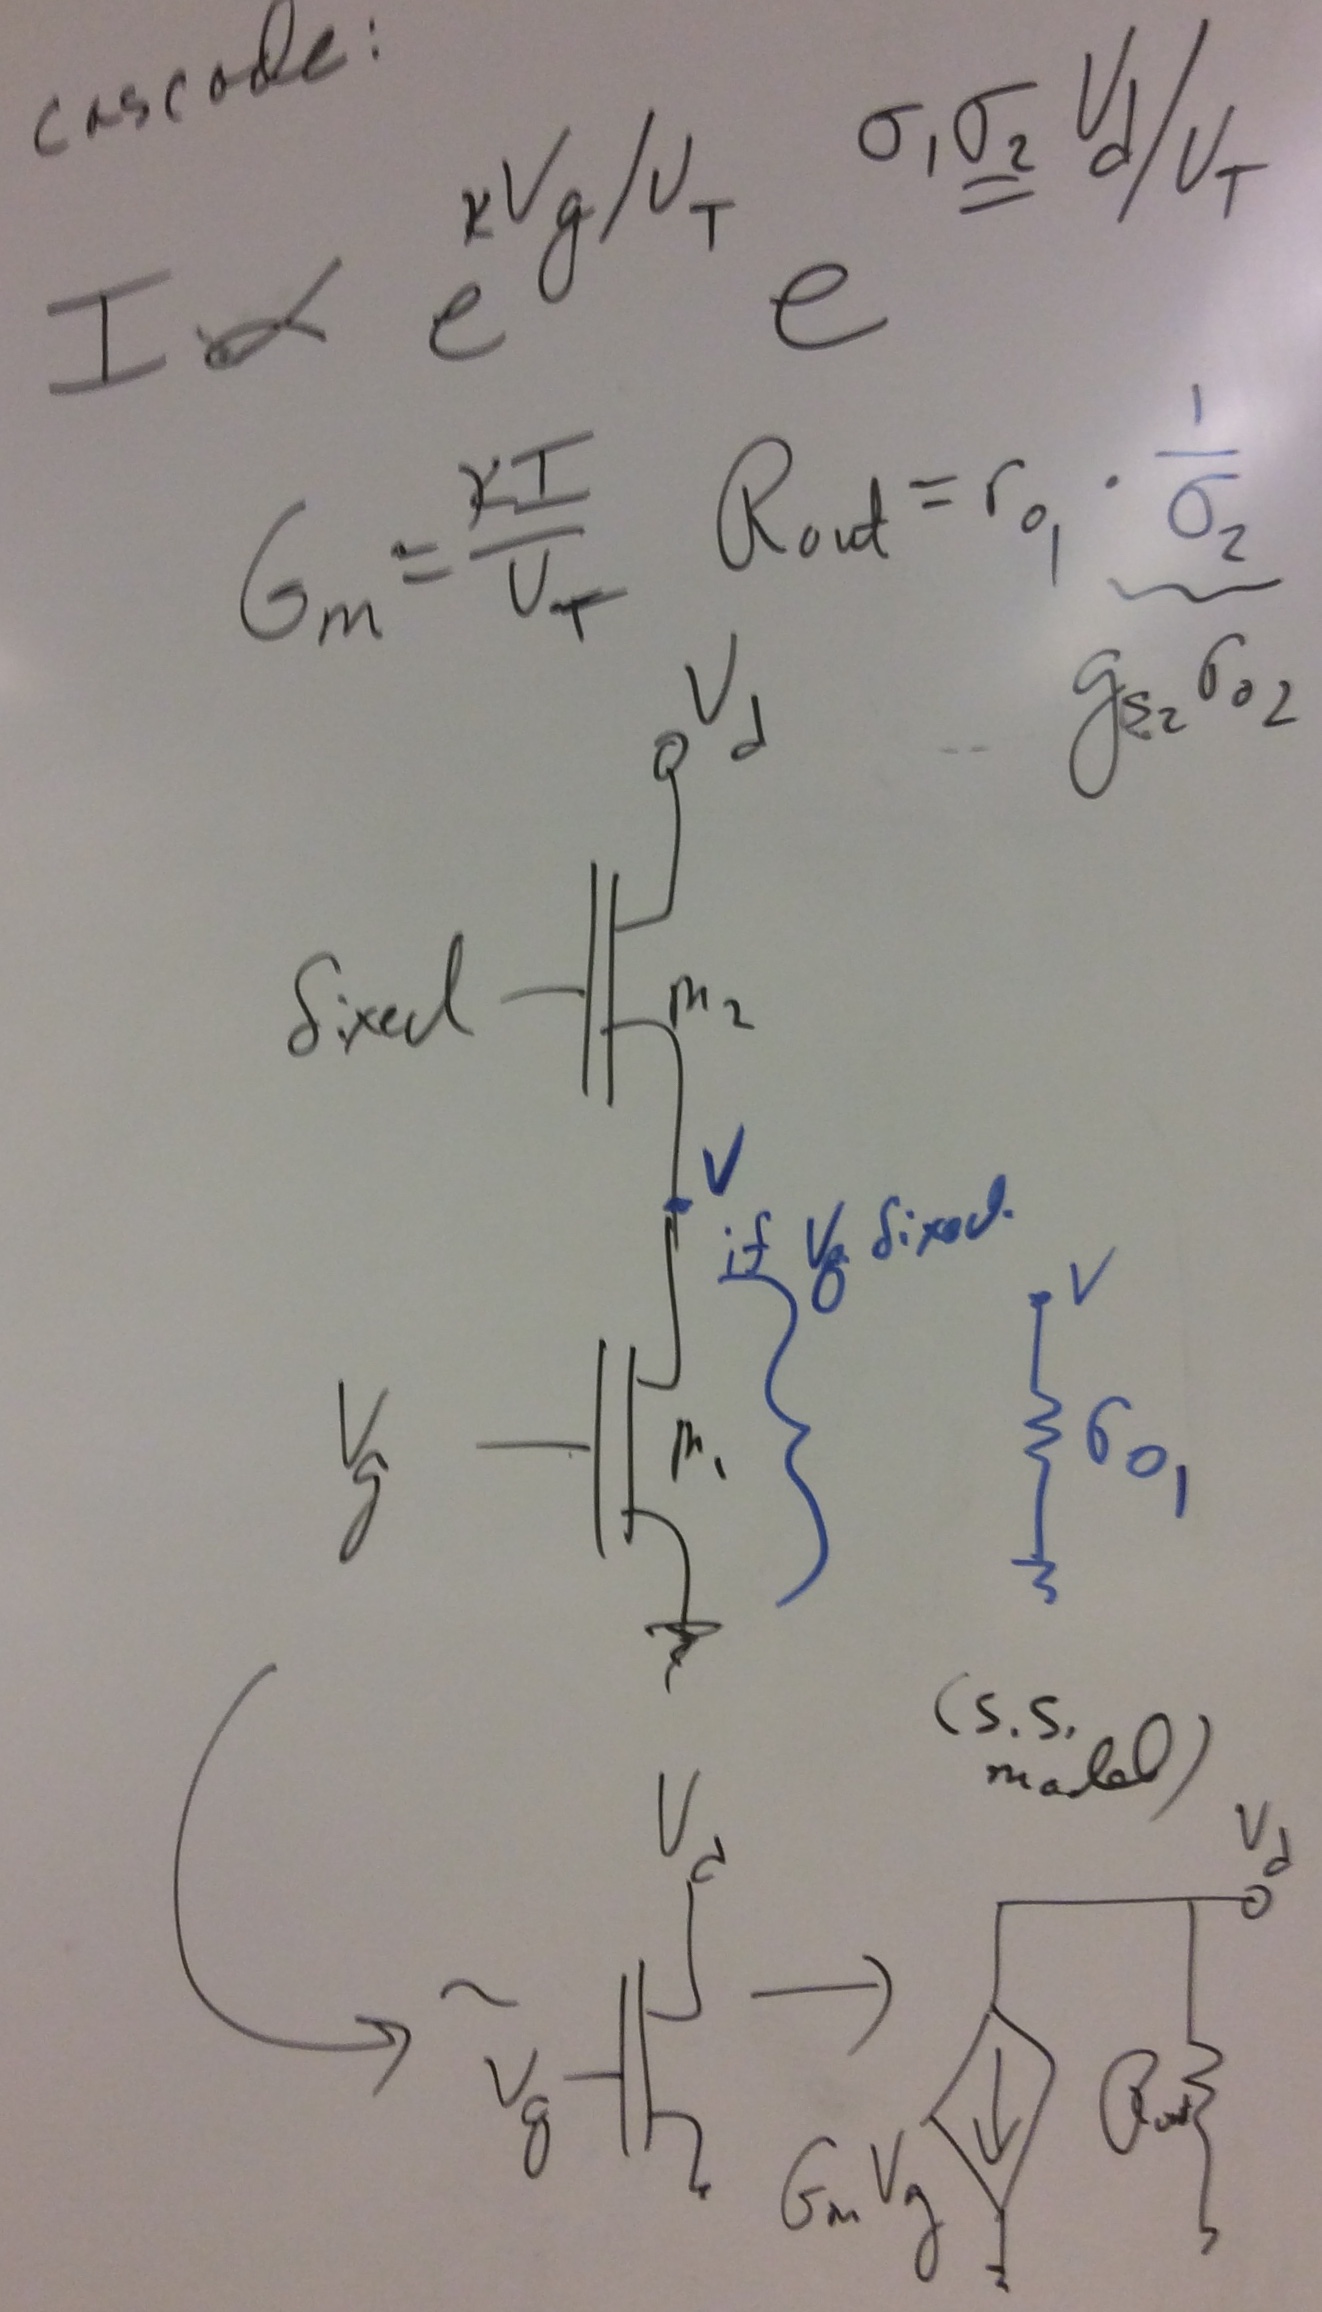 cascode:
I ∝ e^{κVg/U_T} e^{σ₁σ₂ Vd/U_T}
Gm = κI/U_T   Rout = r_{o1} · 1/σ₂
g_{s2} r_{o2}
Vd
fixed
M₂
V
if Vg fixed.
V
Vg
M₁
r_{o1}
(s.s.
model)
Vd
Vd
~
Vg
Gm Vg
Rout